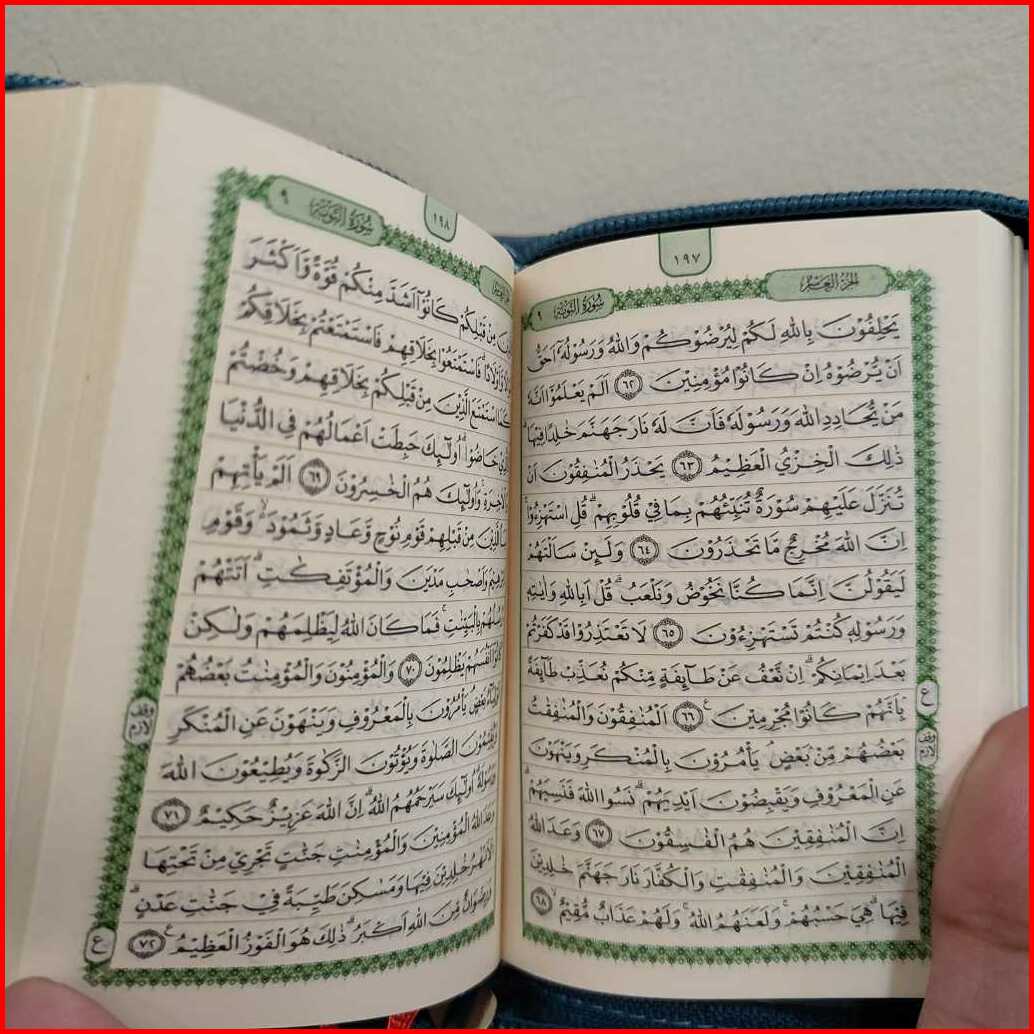 ١٩٧
الجزء العاشر
سورة التوبة ٩
يَحْلِفُوْنَ بِاللّٰهِ لَكُمْ لِيُرْضُوْكُمْ وَاللّٰهُ وَرَسُوْلُهٗٓ اَحَقُّ
اَنْ يُّرْضُوْهُ اِنْ كَانُوْا مُؤْمِنِيْنَ ﴿٦٢﴾ اَلَمْ يَعْلَمُوْٓا اَنَّهٗ
مَنْ يُّحَادِدِ اللّٰهَ وَرَسُوْلَهٗ فَاَنَّ لَهٗ نَارَ جَهَنَّمَ خَالِدًا فِيْهَاۗ
ذٰلِكَ الْخِزْيُ الْعَظِيْمُ ﴿٦٣﴾ يَحْذَرُ الْمُنٰفِقُوْنَ اَنْ
تُنَزَّلَ عَلَيْهِمْ سُوْرَةٌ تُنَبِّئُهُمْ بِمَا فِيْ قُلُوْبِهِمْۗ قُلِ اسْتَهْزِءُوْاۚ
اِنَّ اللّٰهَ مُخْرِجٌ مَّا تَحْذَرُوْنَ ﴿٦٤﴾ وَلَىِٕنْ سَاَلْتَهُمْ
لَيَقُوْلُنَّ اِنَّمَا كُنَّا نَخُوْضُ وَنَلْعَبُۗ قُلْ اَبِاللّٰهِ وَاٰيٰتِهٖ
وَرَسُوْلِهٖ كُنْتُمْ تَسْتَهْزِءُوْنَ ﴿٦٥﴾ لَا تَعْتَذِرُوْا قَدْ كَفَرْتُمْ
بَعْدَ اِيْمَانِكُمْۗ اِنْ نَّعْفُ عَنْ طَاۤىِٕفَةٍ مِّنْكُمْ نُعَذِّبْ طَاۤىِٕفَةً
بِاَنَّهُمْ كَانُوْا مُجْرِمِيْنَ ﴿٦٦﴾ اَلْمُنٰفِقُوْنَ وَالْمُنٰفِقٰتُ
بَعْضُهُمْ مِّنْۢ بَعْضٍۘ يَأْمُرُوْنَ بِالْمُنْكَرِ وَيَنْهَوْنَ
عَنِ الْمَعْرُوْفِ وَيَقْبِضُوْنَ اَيْدِيَهُمْۗ نَسُوا اللّٰهَ فَنَسِيَهُمْۗ
اِنَّ الْمُنٰفِقِيْنَ هُمُ الْفٰسِقُوْنَ ﴿٦٧﴾ وَعَدَ اللّٰهُ
الْمُنٰفِقِيْنَ وَالْمُنٰفِقٰتِ وَالْكُفَّارَ نَارَ جَهَنَّمَ خٰلِدِيْنَ
فِيْهَاۗ هِيَ حَسْبُهُمْۚ وَلَعَنَهُمُ اللّٰهُۚ وَلَهُمْ عَذَابٌ مُّقِيْمٌۙ ﴿٦٨﴾
ع
وقف لازم
١٩٨
سورة التوبة ٩
مِنْ قَبْلِكُمْ كَانُوْٓا اَشَدَّ مِنْكُمْ قُوَّةً وَّاَكْثَرَ
وَّاَوْلَادًاۗ فَاسْتَمْتَعُوْا بِخَلَاقِهِمْ فَاسْتَمْتَعْتُمْ بِخَلَاقِكُمْ
كَمَا اسْتَمْتَعَ الَّذِيْنَ مِنْ قَبْلِكُمْ بِخَلَاقِهِمْ وَخُضْتُمْ
خَاضُوْاۗ اُولٰۤىِٕكَ حَبِطَتْ اَعْمَالُهُمْ فِى الدُّنْيَا
وَالْاٰخِرَةِۚ وَاُولٰۤىِٕكَ هُمُ الْخٰسِرُوْنَ ﴿٦٩﴾ اَلَمْ يَأْتِهِمْ
الَّذِيْنَ مِنْ قَبْلِهِمْ قَوْمِ نُوْحٍ وَّعَادٍ وَّثَمُوْدَ ۙ وَقَوْمِ
وَاَصْحٰبِ مَدْيَنَ وَالْمُؤْتَفِكٰتِۗ اَتَتْهُمْ
بِالْبَيِّنٰتِۚ فَمَا كَانَ اللّٰهُ لِيَظْلِمَهُمْ وَلٰكِنْ
كَانُوْٓا اَنْفُسَهُمْ يَظْلِمُوْنَ ﴿٧٠﴾ وَالْمُؤْمِنُوْنَ وَالْمُؤْمِنٰتُ بَعْضُهُمْ
بَعْضٍۘ يَأْمُرُوْنَ بِالْمَعْرُوْفِ وَيَنْهَوْنَ عَنِ الْمُنْكَرِ
وَيُقِيْمُوْنَ الصَّلٰوةَ وَيُؤْتُوْنَ الزَّكٰوةَ وَيُطِيْعُوْنَ اللّٰهَ
وَرَسُوْلَهٗۗ اُولٰۤىِٕكَ سَيَرْحَمُهُمُ اللّٰهُۗ اِنَّ اللّٰهَ عَزِيْزٌ حَكِيْمٌ ﴿٧١﴾
وَعَدَ اللّٰهُ الْمُؤْمِنِيْنَ وَالْمُؤْمِنٰتِ جَنّٰتٍ تَجْرِيْ مِنْ تَحْتِهَا
الْاَنْهٰرُ خٰلِدِيْنَ فِيْهَا وَمَسٰكِنَ طَيِّبَةً فِيْ جَنّٰتِ عَدْنٍۗ
وَرِضْوَانٌ مِّنَ اللّٰهِ اَكْبَرُۗ ذٰلِكَ هُوَ الْفَوْزُ الْعَظِيْمُ ﴿٧٢﴾
وقف لازم
ع